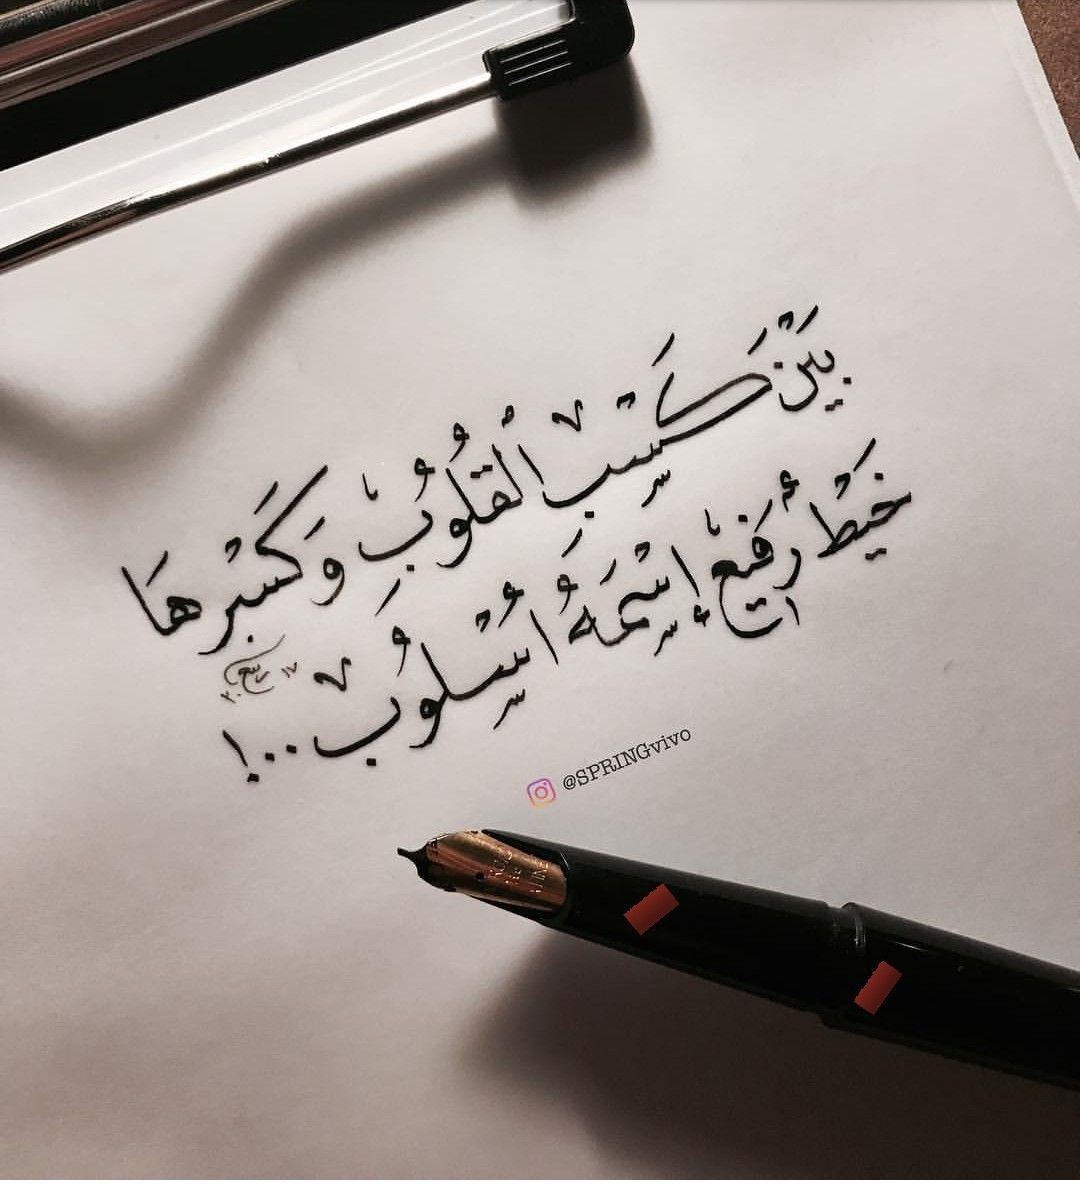 بَيْنَ كَسْبِ الْقُلُوبِ وَكَسْرِهَا
خَيْطٌ رَفِيعٌ إِسْمُهُ أُسْلُوبٌ..!
@SPRINGvivo